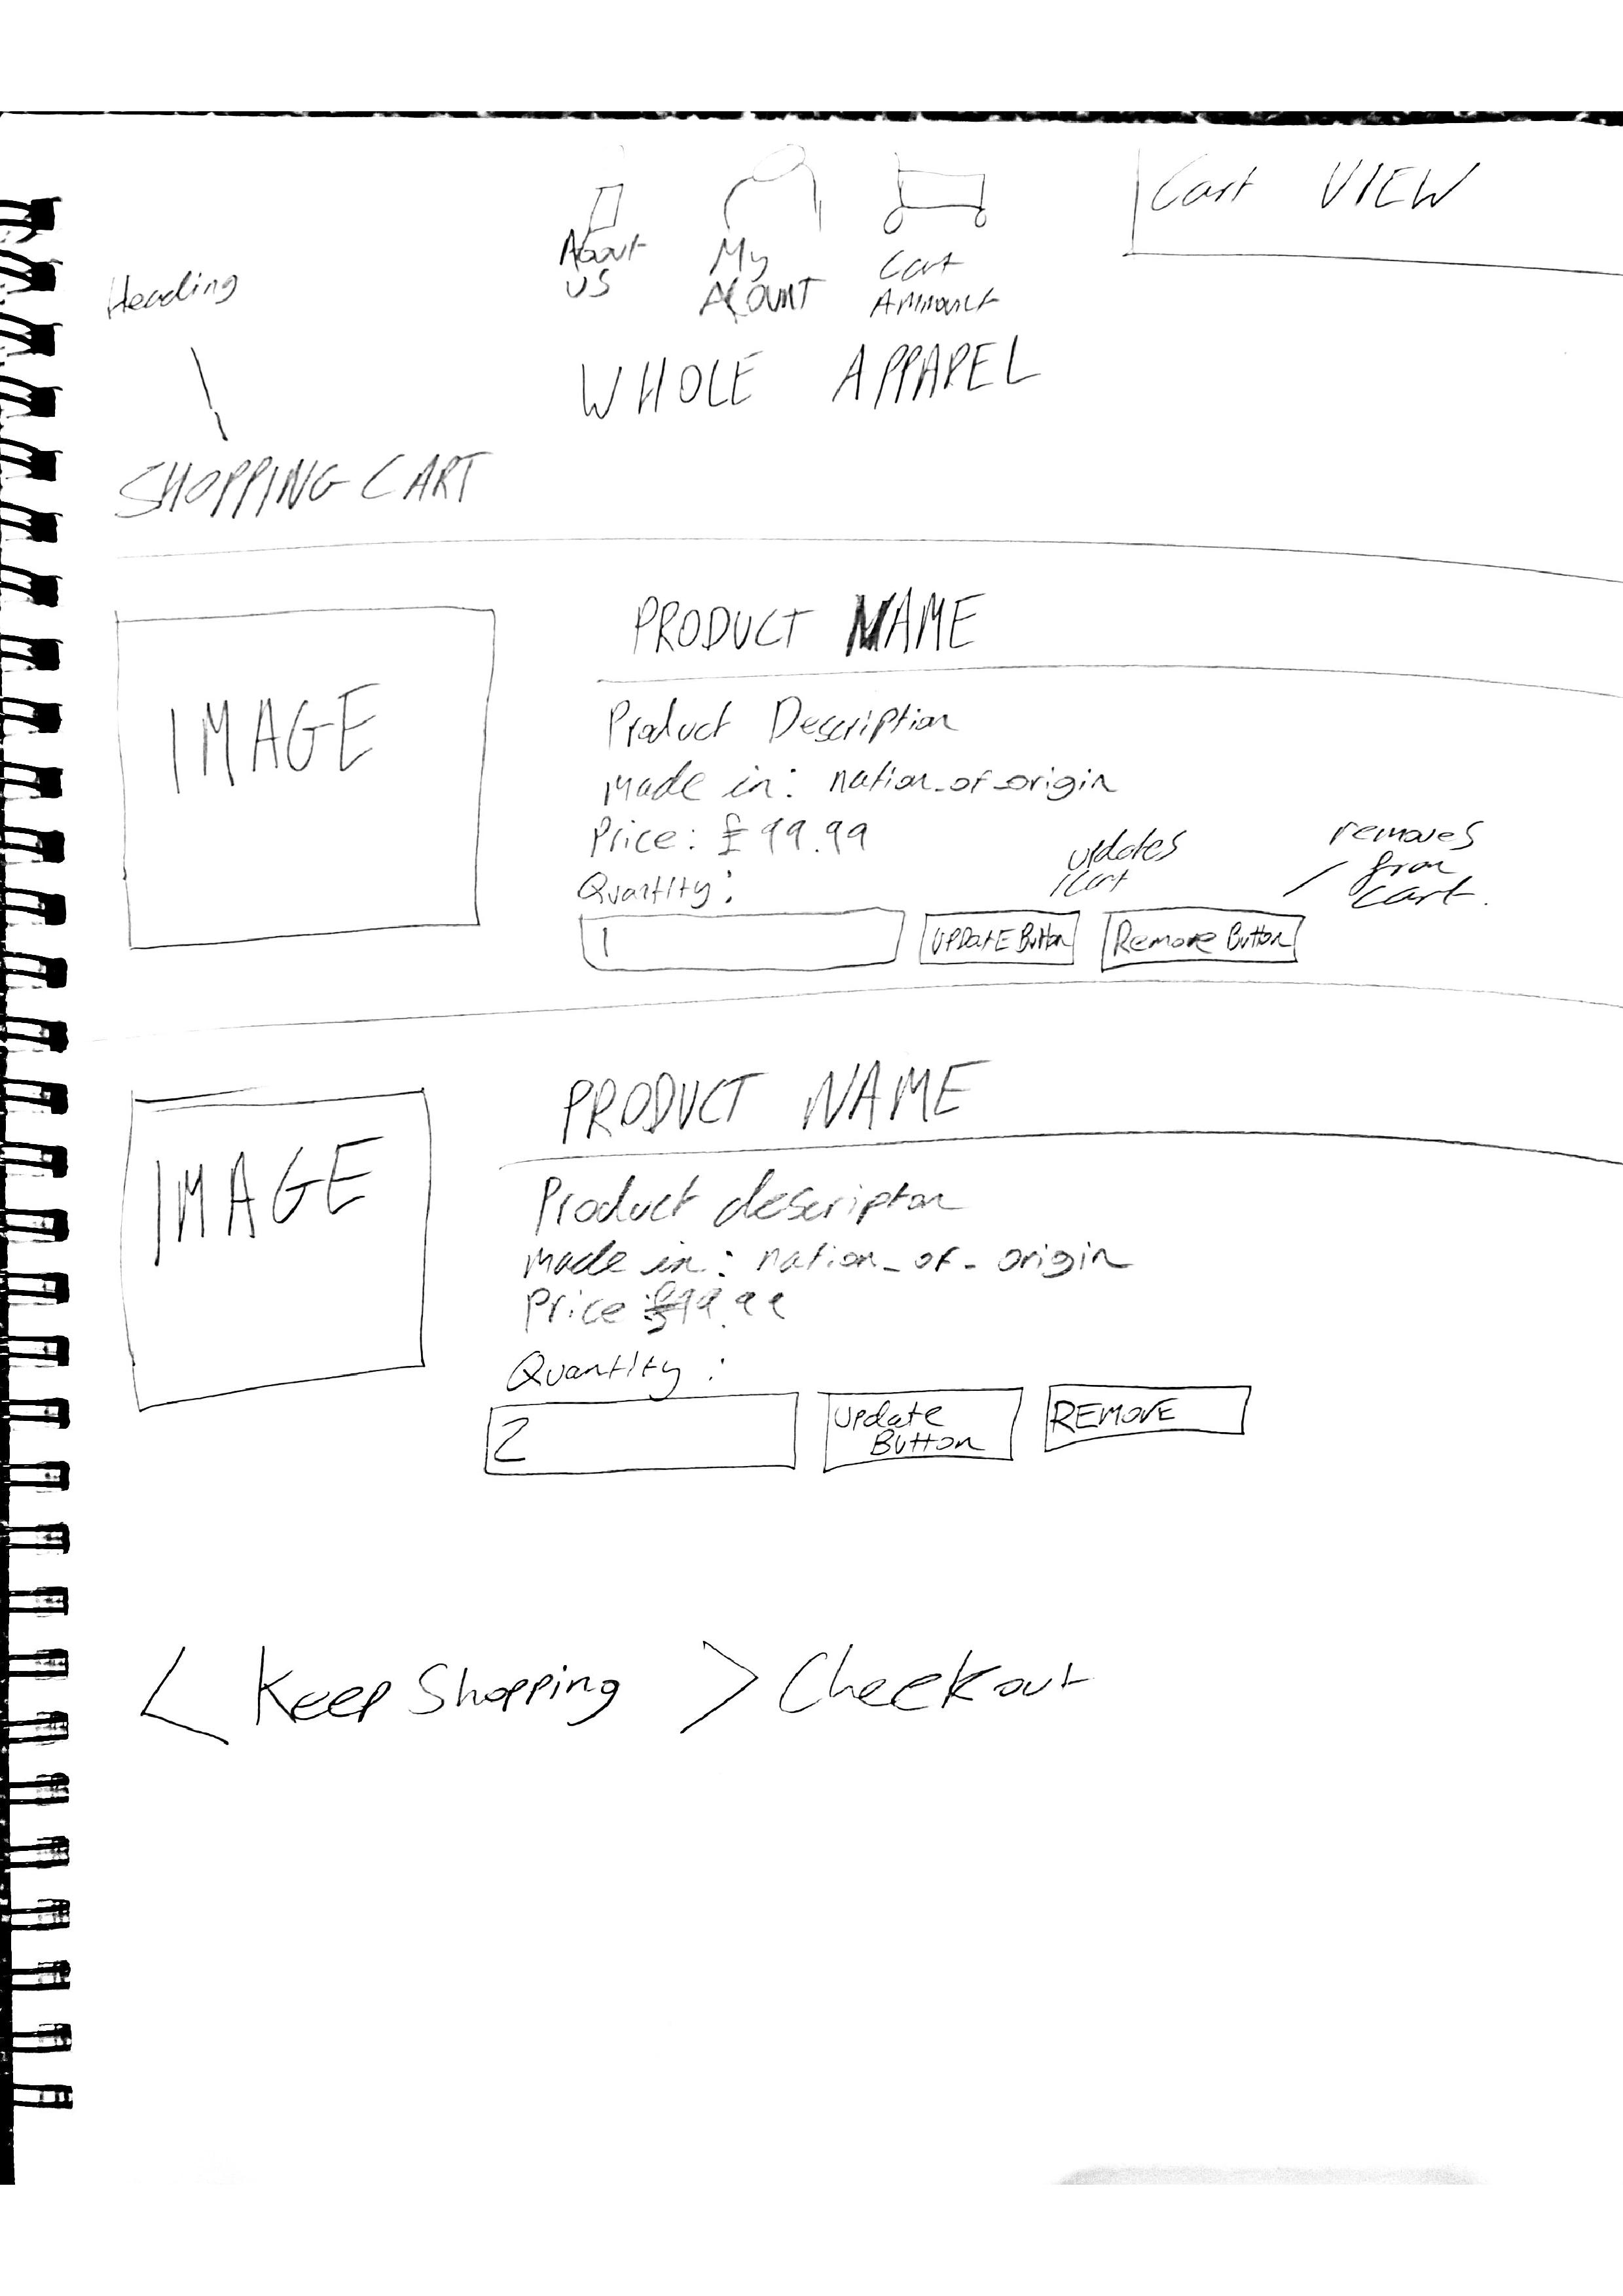 Cart VIEW
About
US
My
ACOUNT
Cart
Ammount
Heading
WHOLE APPAREL
SHOPPING CART
IMAGE
PRODUCT NAME
Product Description
Made in: nation_of_origin
Price: £99.99
Quantity:
updates
cart
removes
from
cart.
1
UPDatE Button
Remove Button
IMAGE
PRODUCT NAME
Product descripton
made in: nation_of_origin
Price :£99.99
Quantity :
2
Update
Button
REMOVE
< Keep Shopping > Checkout